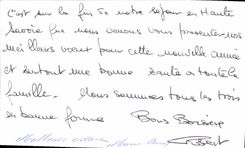 c'est sur la fin de notre séjour en Haute
Savoie que nous venons vous présenter nos
meilleurs vœux pour cette nouvelle année
et surtout une bonne santé à toute la
famille. Nous sommes tous les trois
en bonne forme Bons Baisers
Meilleurs Robert